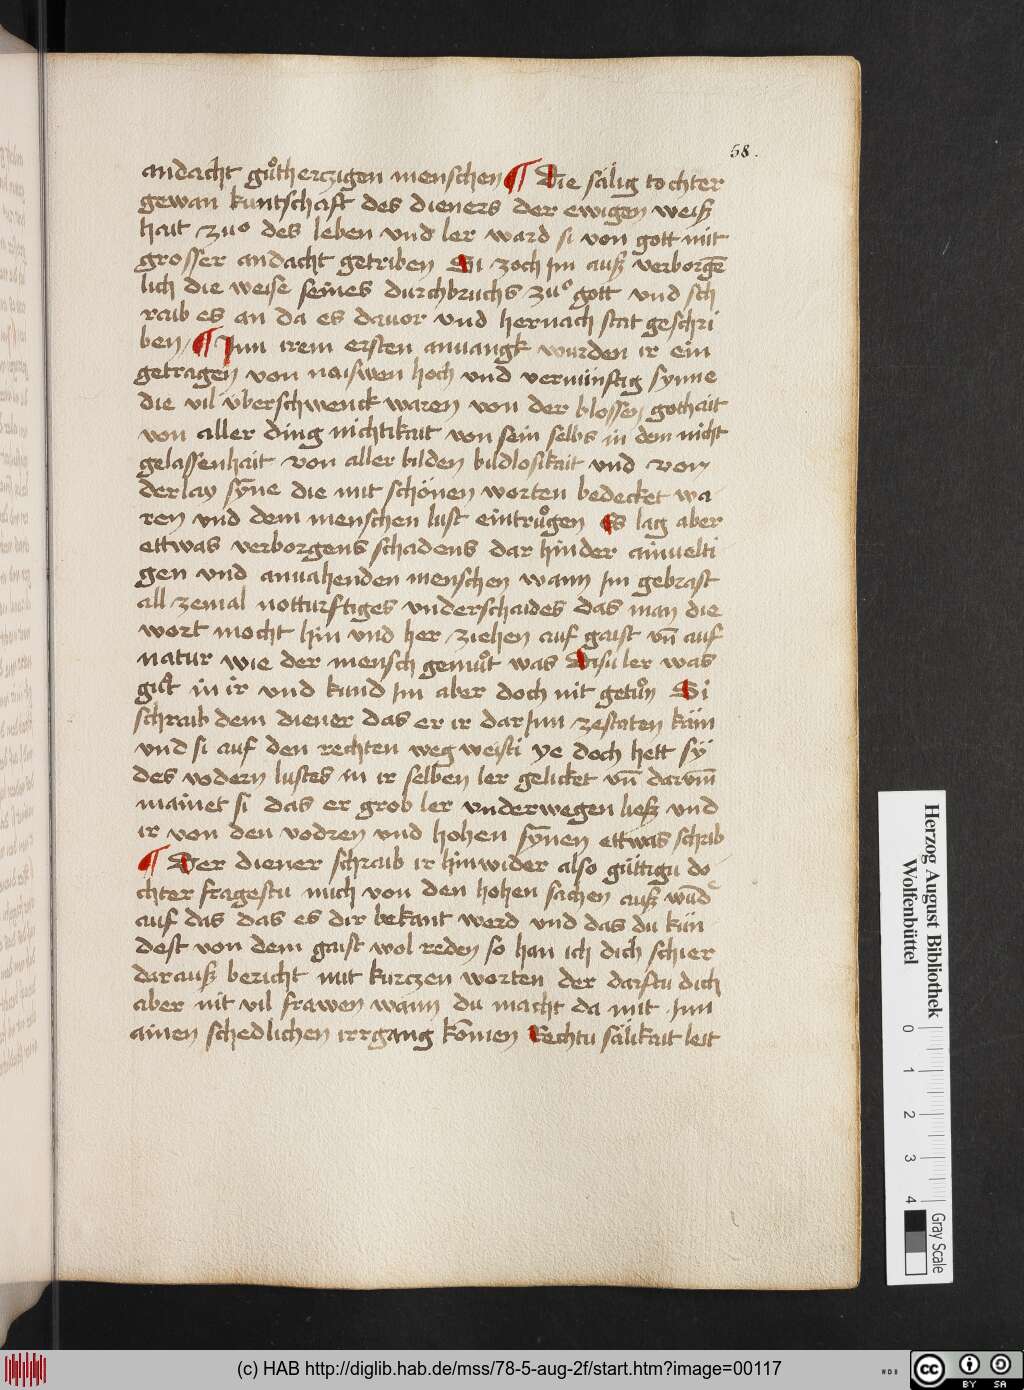 58.
andacht guͦtherczigen menschen ¶ Die sälig tochter
gewan kuntschaft des dieners der ewigen weiß
hait zuͦ des leben vnd ler ward si von gott mit
grosser andacht getriben Si zoch Im auß verborgē
lich die weise seines durchbruchs zuͦ gott vnd sch
raib es an da es dauor vnd hernach stat geschri
ben / ¶ Inn irem ersten anuangk wurden ir ein
getragen von naiswen hoch vnd vernünftig synne
die vil v̈berschwenck waren von der blossen gothait
von aller ding nichtikait von sein selbs in dem nicht
gelassenhait von aller bilden bildlosikait vnd von
derlay sȳne die mit schönen worten bedecket wa
ren vnd dem menschen lust eintruͦgen Es lag aber
ettwas verborgens schadens dar hinder ainuelti
gen vnd anuahenden menschen wann Im gebrast
all zemal notturftiges vnderschaides das man die
wort mocht hin vnd her ziehen auf gaist vn̄ auf
natur wie der mensch gemuͦt was Disu ler was
guͦt in ir vnd kund Im aber doch nit getuͦn Si
schraib dem diener das er ir darInn zestaten käm
vnd si auf den rechten weg weisti ye doch hett sÿ
des vodern lustes in ir selben ler gelicket vn̄ darvm̄
mainet si das er grob ler vnderwegen ließ vnd
ir von den vodren vnd hohen sȳnen ettwas schrib
¶ Der diener schraib ir hinwider also güttigu do
chter fragestu mich von den hohen sachen auß wūd
auf das das es dir bekant werd vnd das du kün
dest von dem gaist wol reden so han ich dich schier
darauß bericht mit kurczen worten der darftu dich
aber nit vil frawen wann du macht da mit Inn
ainen schedlichen irrgang kom̄en Rechtu sälikait leit
Herzog August Bibliothek
Wolfenbüttel
0
1
2
3
4
Gray Scale
(c) HAB http://diglib.hab.de/mss/78-5-aug-2f/start.htm?image=00117
WDB
cc
BY SA